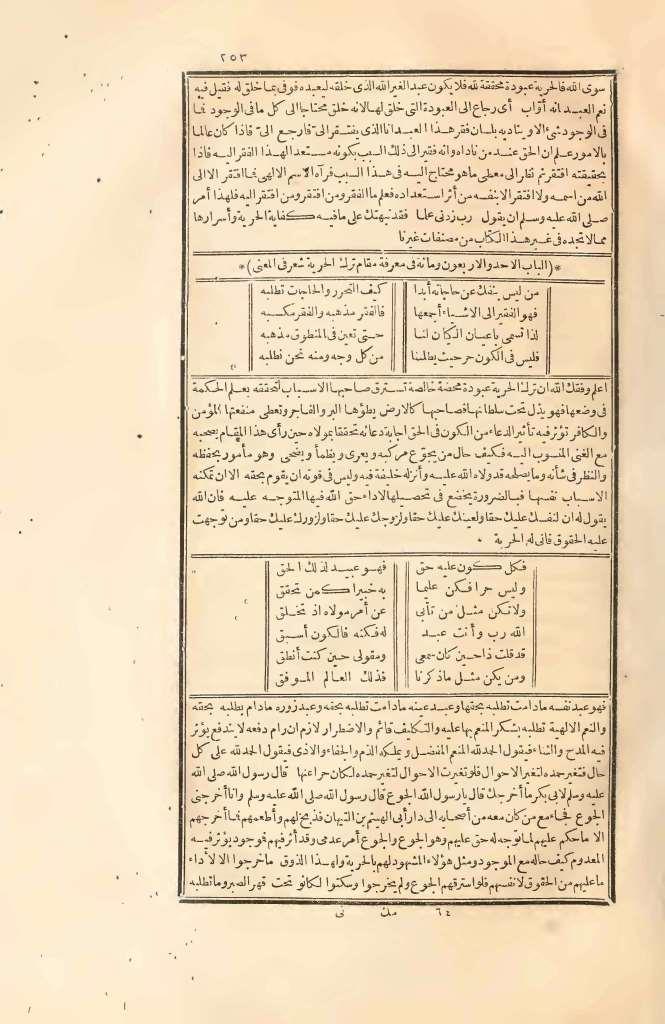 ٢٥٣
سوى الله فالحرية عبودة محققة لله فلا يكون عبدا لغير الله الذى خلقه ليعبده فوفى بما خلق له فقيل فيه
نعم العبد انه أواب أى رجاع الى العبودة التى خلق لها لانه خلق محتاجا الى كل ما فى الوجود فما
فى الوجود شئ الا ويناديه بلسان فقر هذا العبد أنا الذى يفتقر الىّ فارجع الىّ فاذا كان عالما
بالامور علم ان الحق عند من ناداه وانه فقير الى ذلك السبب بكونه مستعد الهذا الفقر اليه فاذا
بحقيقته افتقر ثم نظر الى معطى ما هو محتاج اليه فى هذا السبب فرآه الاسم الالهى فما افتقر الا الى
الله من اسمه ولا افتقر الا بنفسه من أثر استعداده فعلم ما الفقر ومن افتقر ومن افتقر اليه فلهذا أمر
صلى الله عليه وسلم ان يقول رب زدنى علما فقد نبهتك على ما فيه كفاية الحرية وأسرارها
مما لا تجده فى غير هذا الكتاب من مصنفات غيرنا
*(الباب الاحد والاربعون ومائة فى معرفة مقام ترك الحرية شعر فى المعنى)*
من ليس ينفك عن حاجاته أبدا كيف التحرر والحاجات تطلبه
فهو الفقير الى الاشياء أجمعها فالفقر مذهبه والفقر مكسبه
لذا تسمى باعيان الكيان لنا حتى تعين فى المنطوق مذهبه
فليس فى الكون حر حيث يطلبنا من كل وجه ومنه نحن نطلبه
اعلم وفقك الله ان ترك الحرية عبودة محضة خالصة تسترق صاحبها الاسباب لتحققه بعلم الحكمة
فى وضعها فهو يذل تحت سلطانها فصاحبها كالارض يطؤها البر والفاجر وتعطى منفعتها المؤمن
والكافر تؤثر فيه تأثير الدعاء من الكون فى الحق اجابة دعائه تحققا بمولاه حين رأى هذا المقام يصحبه
مع الغنى المنسوب اليه فكيف حال من يجوع مركبه ويعرى ويظمأ ويضحى وهو مأمور بحفظه
والنظر فى شأنه وما يصلحه قد ولاه الله عليه وأنزله خليفة فيه وليس فى قوته ان يقوم بحقه الا ان تمكنه
الاسباب نفسها فبالضرورة يخضع فى تحصيلها لاداء حق الله فيها المتوجه عليه فان الله
يقول له ان لنفسك عليك حقا ولعينك عليك حقا ولزوجك عليك حقا ولزورك عليك حقا ومن توجهت
عليه الحقوق فانى له الحرية
فكل كون عليه حق فهو عبيد لذلك الحق
وليس حرا فكن عليما به خبيرا كمن تحقق
ولا تكن مثل من تأبى عن أمر مولاه اذ تخلق
الله رب وأنت عبد له فكنه فالكون أسبق
قد قلت ذا حين كان سمعى ومقولى حين كنت أنطق
ومن يكن مثل ما ذكرنا فذلك العالم الموفق
فهو عبد نفسه ما دامت تطلبه بحقها وعبد عينه ما دامت تطلبه بحقه وعبد زوره ما دام يطلبه بحقه
والنعم الالهية تطلبه بشكر المنعم بها عليه والتكليف قائم والاضطرار لازم ان رام دفعه لا يندفع يؤثر
فيه المدح والثناء فيقول الحمد لله المنعم المفضل ويملكه الذم والجفاء والاذى فيقول الحمد لله على كل
حال فتغير حمده لتغير الاحوال فلو تغيرت الاحوال لتغير حمده لكان حرا عنها قال رسول الله صلى الله
عليه وسلم لابى بكر ما أخرجك قال يا رسول الله الجوع قال رسول الله صلى الله عليه وسلم وأنا أخرجنى
الجوع فجاء مع من كان معه من أصحابه الى دار أبى الهيثم بن التيهان فذبح لهم وأطعمهم فما أخرجهم
الا ما حكم عليهم لما توجه له حق عليهم وهو الجوع والجوع أمر عدمى وقد أثر فيهم فوجود يؤثر فيه
المعدوم كيف حاله مع الموجود ومثل هؤلاء المشهود لهم بالحرية ولهذا الذوق ما خرجوا الا لأداء
ما عليهم من الحقوق لانفسهم فلو استرقهم الجوع ولم يخرجوا وسكنوا لكانوا تحت قهر الصبر وما تطلبه
٦٤ مك نى